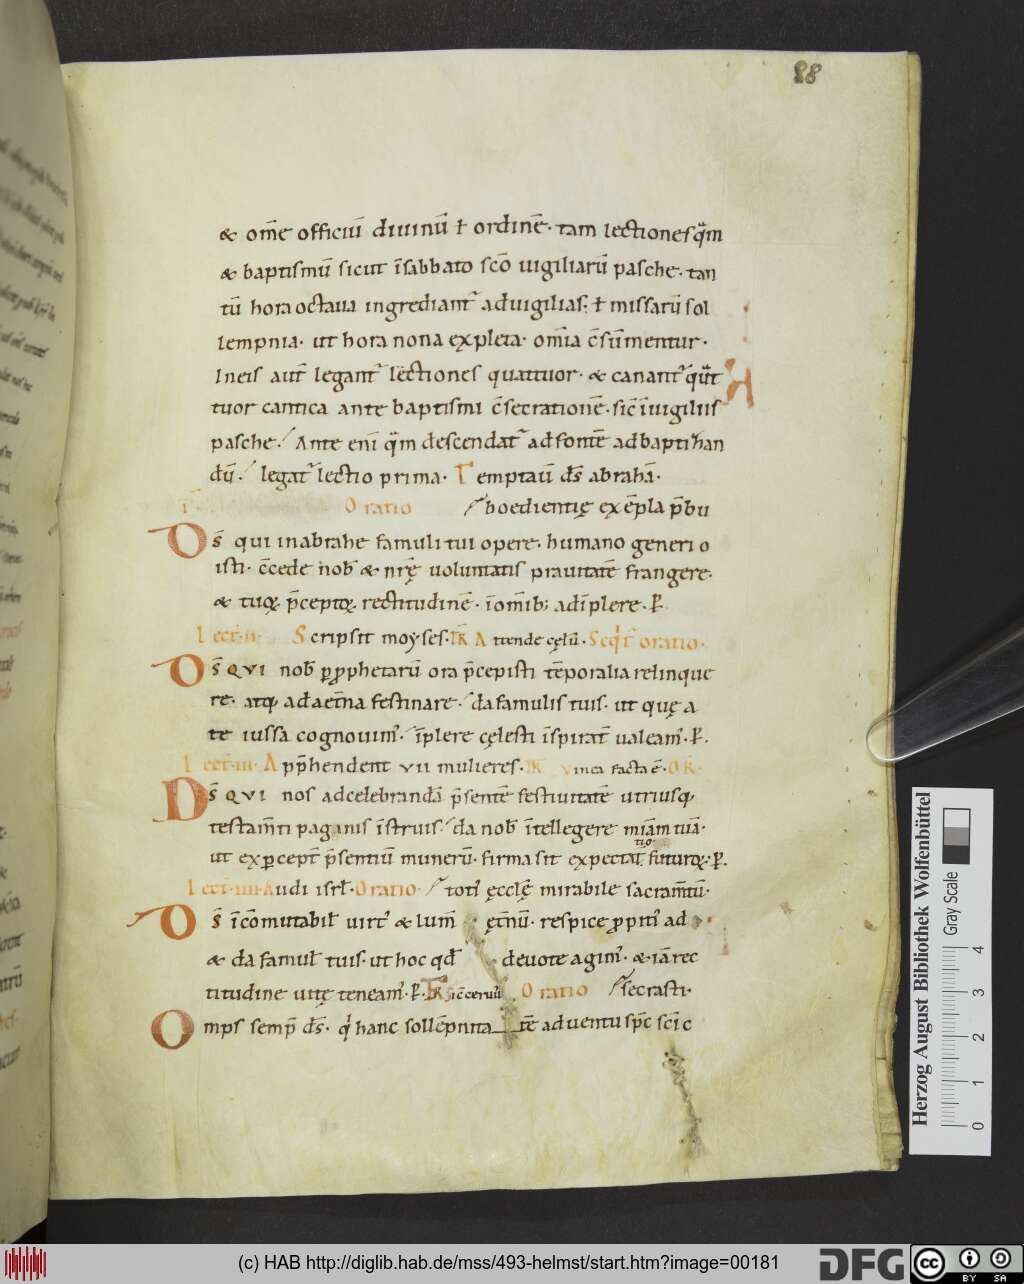 88
& om̅e officiu̅ diuinu̅ ł ordine̅· tam lectiones qua̅m
& baptismu̅ sicut i̅ sabbato sc̅o uigiliaru̅ pasche· tan
tu̅ hora octaua ingrediant᷑ ad uigilias· ł missaru̅ sol
lempnia· ut hora nona expleta· om̅ia c̅su̅mentur·
In eis aut̅ legant᷑ lectiones quattuor· & canant᷑ qua̅t
tuor cantica ante baptismi c̅secratione̅· sic̅ i̅ uigiliis
pasche· Ante eni̅ qua̅m descendat᷑ ad fonte̅ ad baptizan
du̅· legat᷑ lectio prima· Temptau̅ ds̅ abraha̅·
Oratio boedientię exe̅pla p̅bu
Ds̅ qui in abrahe famuli tui opere· humano generi o
isti· c̅cede nob̅ & nr̅ę uoluntatis prauitate̅ frangere·
& tuoꝝ p̅ceptoꝝ rectitudine̅· i̅ om̅ib; adi̅plere· P̲
Lect· ii· Scripsit moyses· Attende cęlu̅· Seq̅t oratio·
Ds̅ QVI nob̅ ꝑ ꝓphetaru̅ ora p̅cepisti te̅poralia relinque
re· atq; ad aet̅na festinare· da famulis tuis· ut quę a
te iussa cognouim᷒· i̅plere cęlesti i̅spirat̅ ualeam᷒· P̲·
Lect· iii· App̅hendent vii mulieres· Vinea facta e̅· OR̅·
Ds̅ QVI nos ad celebranda̅ p̅sente̅ festiuitate̅ utriusq;
testam̅ti paganis i̅struis· da nob̅ i̅tellegere mi̅am tua̅·
tio
ut ex ꝑcept̅ p̅sentiu̅ muneru̅· firma sit expectat̅ futuroꝝ· P̲·
Lect· iiii· Audi isrl̅· Oratio· toti᷒ ęccl̅ę mirabile sacram̅tu̅·
Ds̅ i̅co̅mutabil̅ uirt᷒ & lum̅ ęt̅nu̅· respice ꝓpiti᷒ ad
& da famul̅ tuis· ut hoc qd̅ deuote agim᷒· & ia̅ rec
titudine uitę teneam᷒· P̲· Sic̅ ceruu᷒ Oratio secrasti·
Omps̅ semp̅ ds̅· qi̅ hanc solle̅pnita te̅ aduentu sp̅c sc̅i c
Herzog August Bibliothek Wolfenbüttel
Gray Scale
0 1 2 3 4
(c) HAB http://diglib.hab.de/mss/493-helmst/start.htm?image=00181
DFG
cc BY SA